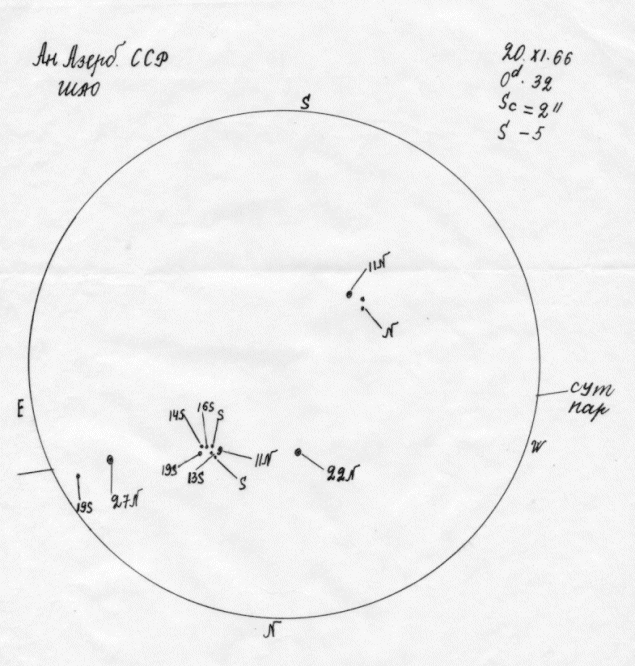 Ан Азерб. ССР
ШАО
20.XI.66
0ᵈ.32
Sc = 2"
S - 5
S
11N
N
сут
пар
E
W
14S
16S
S
19S
13S
S
11N
22N
19S
27N
N